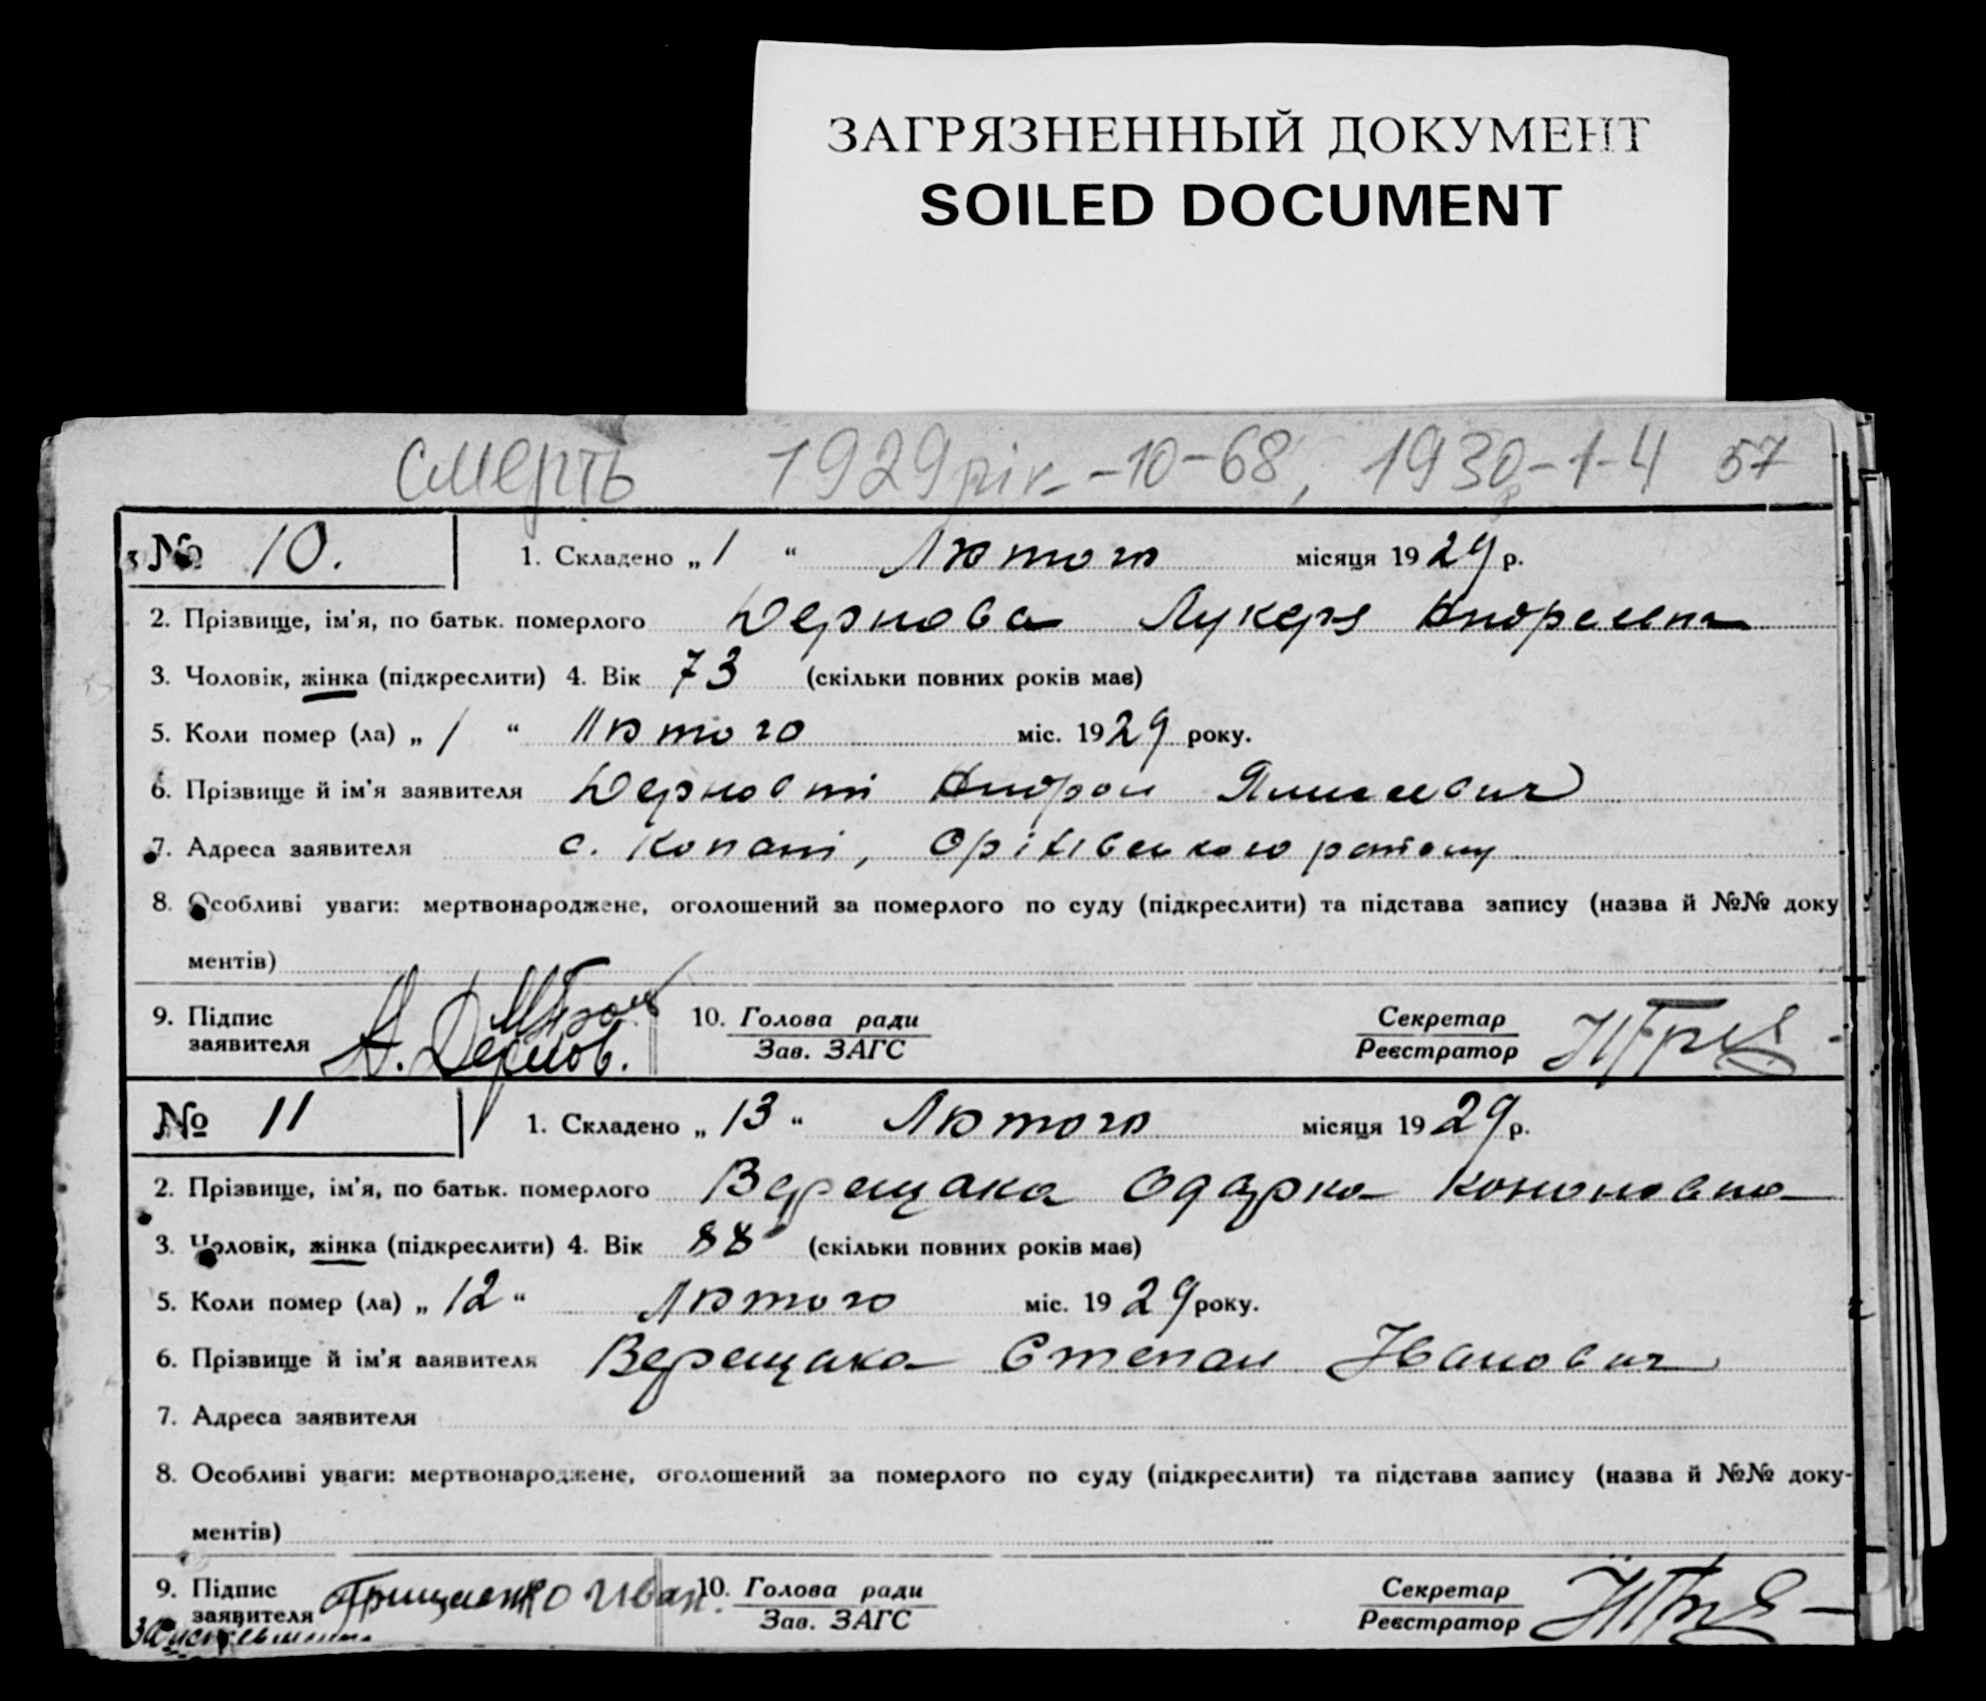 ЗАГРЯЗНЕННЫЙ ДОКУМЕНТ
SOILED DOCUMENT
смерть 1929 рік - 10-68, 1930 р - 1-4 57
№ 10. 1. Складено „ 1 “ Лютого місяця 1929 р.
2. Прізвище, ім'я, по батьк. померлого Дернова Лукеря
3. Чоловік, жінка (підкреслити) 4. Вік 73 (скільки повних років має)
5. Коли помер (ла) „ 1 “ Лютого міс. 1929 року.
6. Прізвище й ім'я заявителя
7. Адреса заявителя с. Копані, Оріхівського
8. Особливі уваги: мертвонароджене, оголошений за померлого по суду (підкреслити) та підстава запису (назва й №№ доку
ментів)
9. Підпис 10. Голова ради Секретар
заявителя А. Дернов. Зав. ЗАГС Реєстратор
№ 11 1. Складено „ 13 “ Лютого місяця 1929 р.
2. Прізвище, ім'я, по батьк. померлого Верещака Одарка Кононовна
3. Чоловік, жінка (підкреслити) 4. Вік 88 (скільки повних років має)
5. Коли помер (ла) „ 12 “ Лютого міс. 1929 року.
6. Прізвище й ім'я заявителя Верещака Степан Іванович
7. Адреса заявителя
8. Особливі уваги: мертвонароджене, оголошений за померлого по суду (підкреслити) та підстава запису (назва й №№ доку-
ментів)
9. Підпис Грищенко Иван. 10. Голова ради Секретар
заявителя Зав. ЗАГС Реєстратор